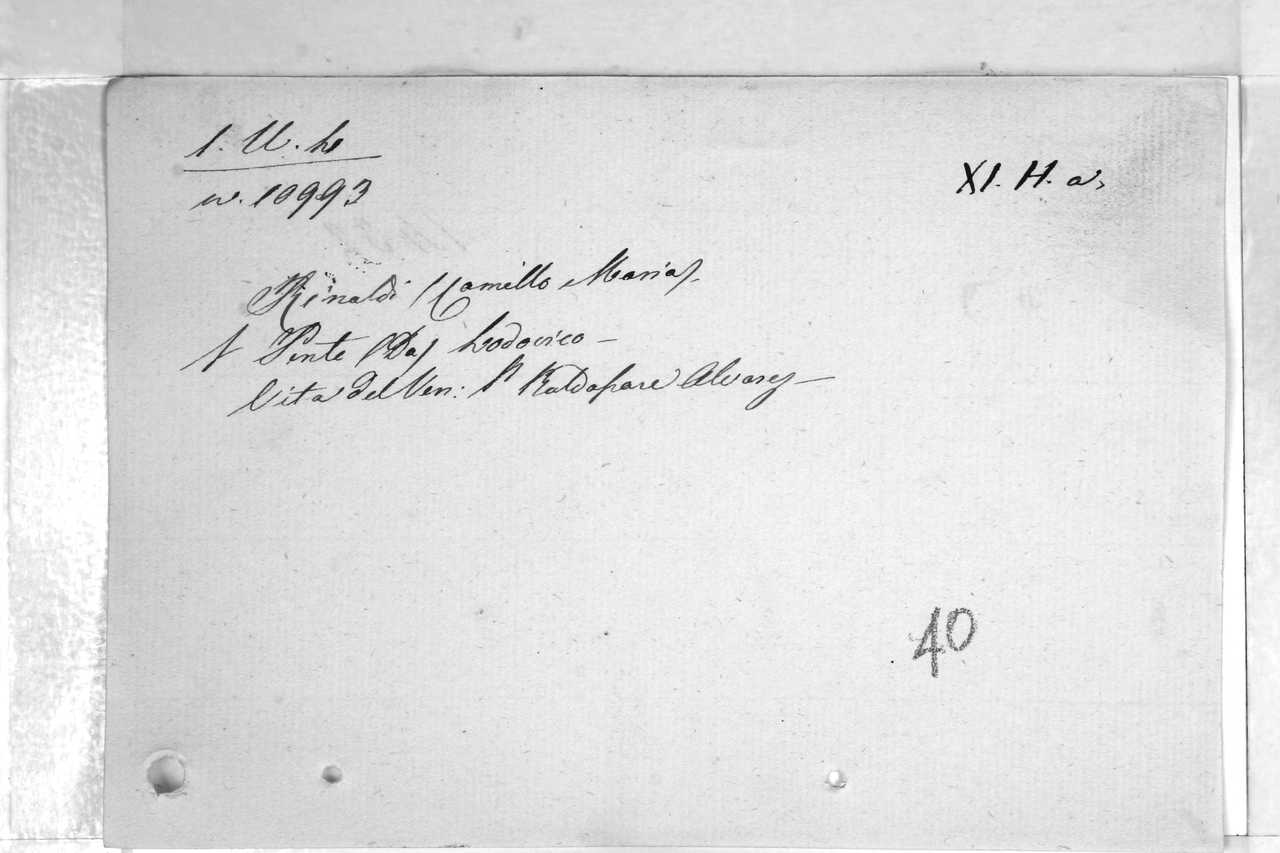 1. U. h
w. 10993
XI. H. a.
Rinaldi /Camillo Maria/.
/ Ponte /Da/ Lodovico —
Vita del Ven: P. Baldassare Alvarez —
40